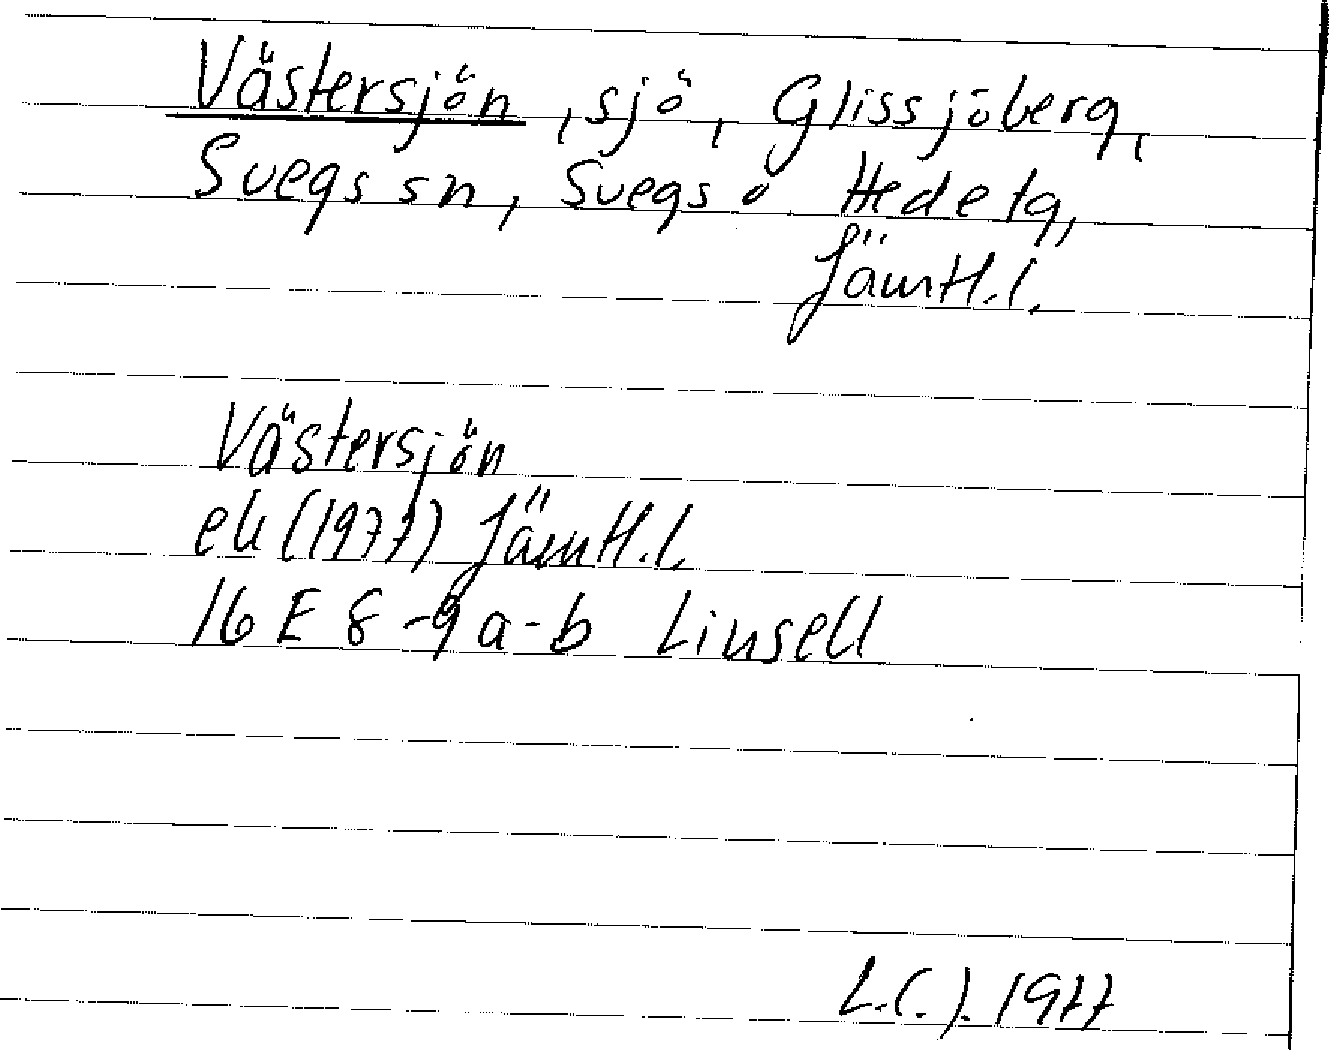 Västersjön, sjö, Glissjöberg,
Svegs sn, Svegs o Hede tg,
Jämtl. l.
Västersjön
ek (1977) Jämtl. l.
16 E 8-9 a-b Linsell
1977